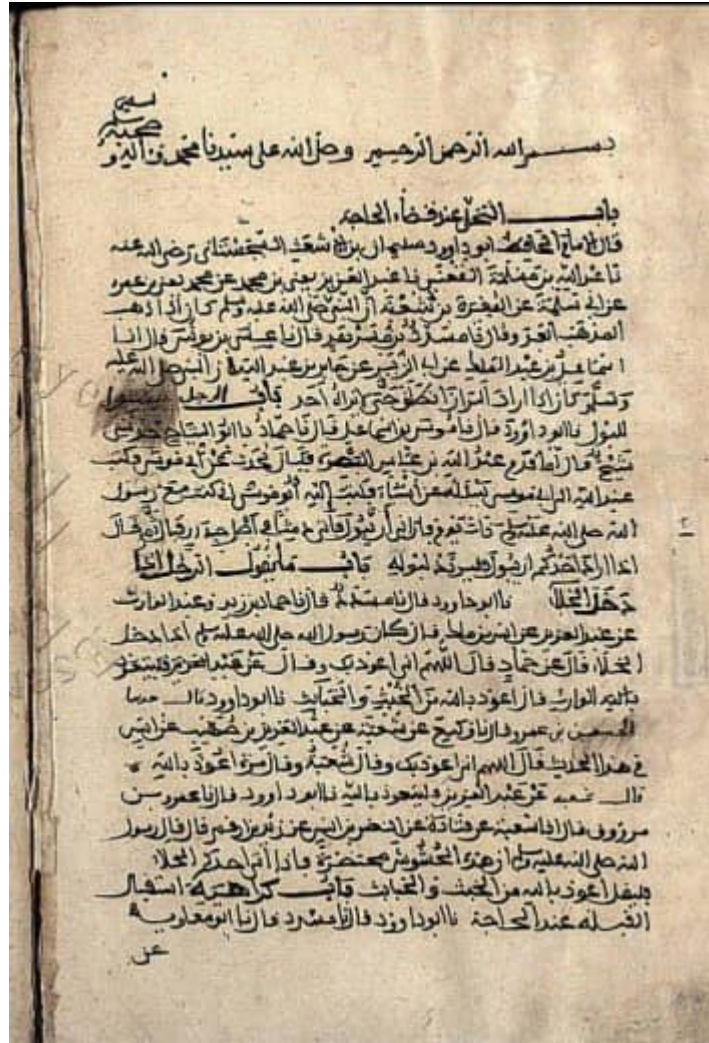 بسم الله الرحمن الرحيم وصلى الله على سيدنا محمد وآله و
صحبه وسلم
باب التخلي عند قضاء الحاجة
قال الامام الحافظ ابو داوود سليمان بن الاشعث السجستاني رضي الله عنه
نا عبد الله بن مسلمة القعنبي نا عبد العزيز يعني بن محمد عن محمد يعني بن عمرو
عن ابي سلمة عن المغيرة بن شعبة ان النبي صلى الله عليه وسلم كان اذا ذهب
المذهب ابعد وقال نا مسدد بن مسرهد قال نا عيسى بن يونس قال انا
اسماعيل بن عبد الملك عن ابي الزبير عن جابر بن عبد الله ان النبي صلى الله عليه
وسلم كان اذا اراد البراز انطلق حتى لا يراه احد باب الرجل يتبوا
للبول نا ابو داوود قال نا موسى بن اسماعيل قال نا حماد نا ابو التياح حدثني
شيخ قال لما قدم عبد الله بن عباس البصرة فكان يحدث عن ابي موسى فكتب
عبد الله الى ابي موسى يسئله عن اشياء فكتب اليه ابو موسى اني كنت مع رسول
الله صلى الله عليه وسلم ذات يوم فاراد ان يبول فاتى دمثا في اصل جدار فبال ثم قال
اذا اراد احدكم ان يبول فليرتد لبوله باب ما يقول الرجل اذا
دخل الخلا نا ابو داوود قال نا مسدد قال نا حماد بن زيد وعبد الوارث
عن عبد العزيز عن انس بن مالك قال كان رسول الله صلى الله عليه وسلم اذا دخل
الخلا قال عن حماد قال اللهم اني اعوذ بك وقال عن عبد
الوارث قال اعوذ بالله من الخبث والخبائث نا ابو داوود قال حدثنا
الحسين بن عمرو قال نا وكيع عن شعبة عن عبد العزيز بن صهيب عن انس
في هذا الحديث قال اللهم اني اعوذ بك وقال شعبة وقال مرة اعوذ بالله
قال عن عبد العزيز فليتعوذ بالله نا ابو داوود قال نا عمرو بن
مرزوق قال انا شعبة عن قتادة عن النضر بن انس عن زيد بن ارقم قال قال رسول
الله صلى الله عليه وسلم ان هذه الحشوش محتضرة فاذا اتى احدكم الخلا
فليقل اعوذ بالله من الخبث والخبائث باب كراهية استقبال
القبلة عند الحاجة نا ابو داوود قال نا مسدد قال نا ابو معاوية
عن
٢